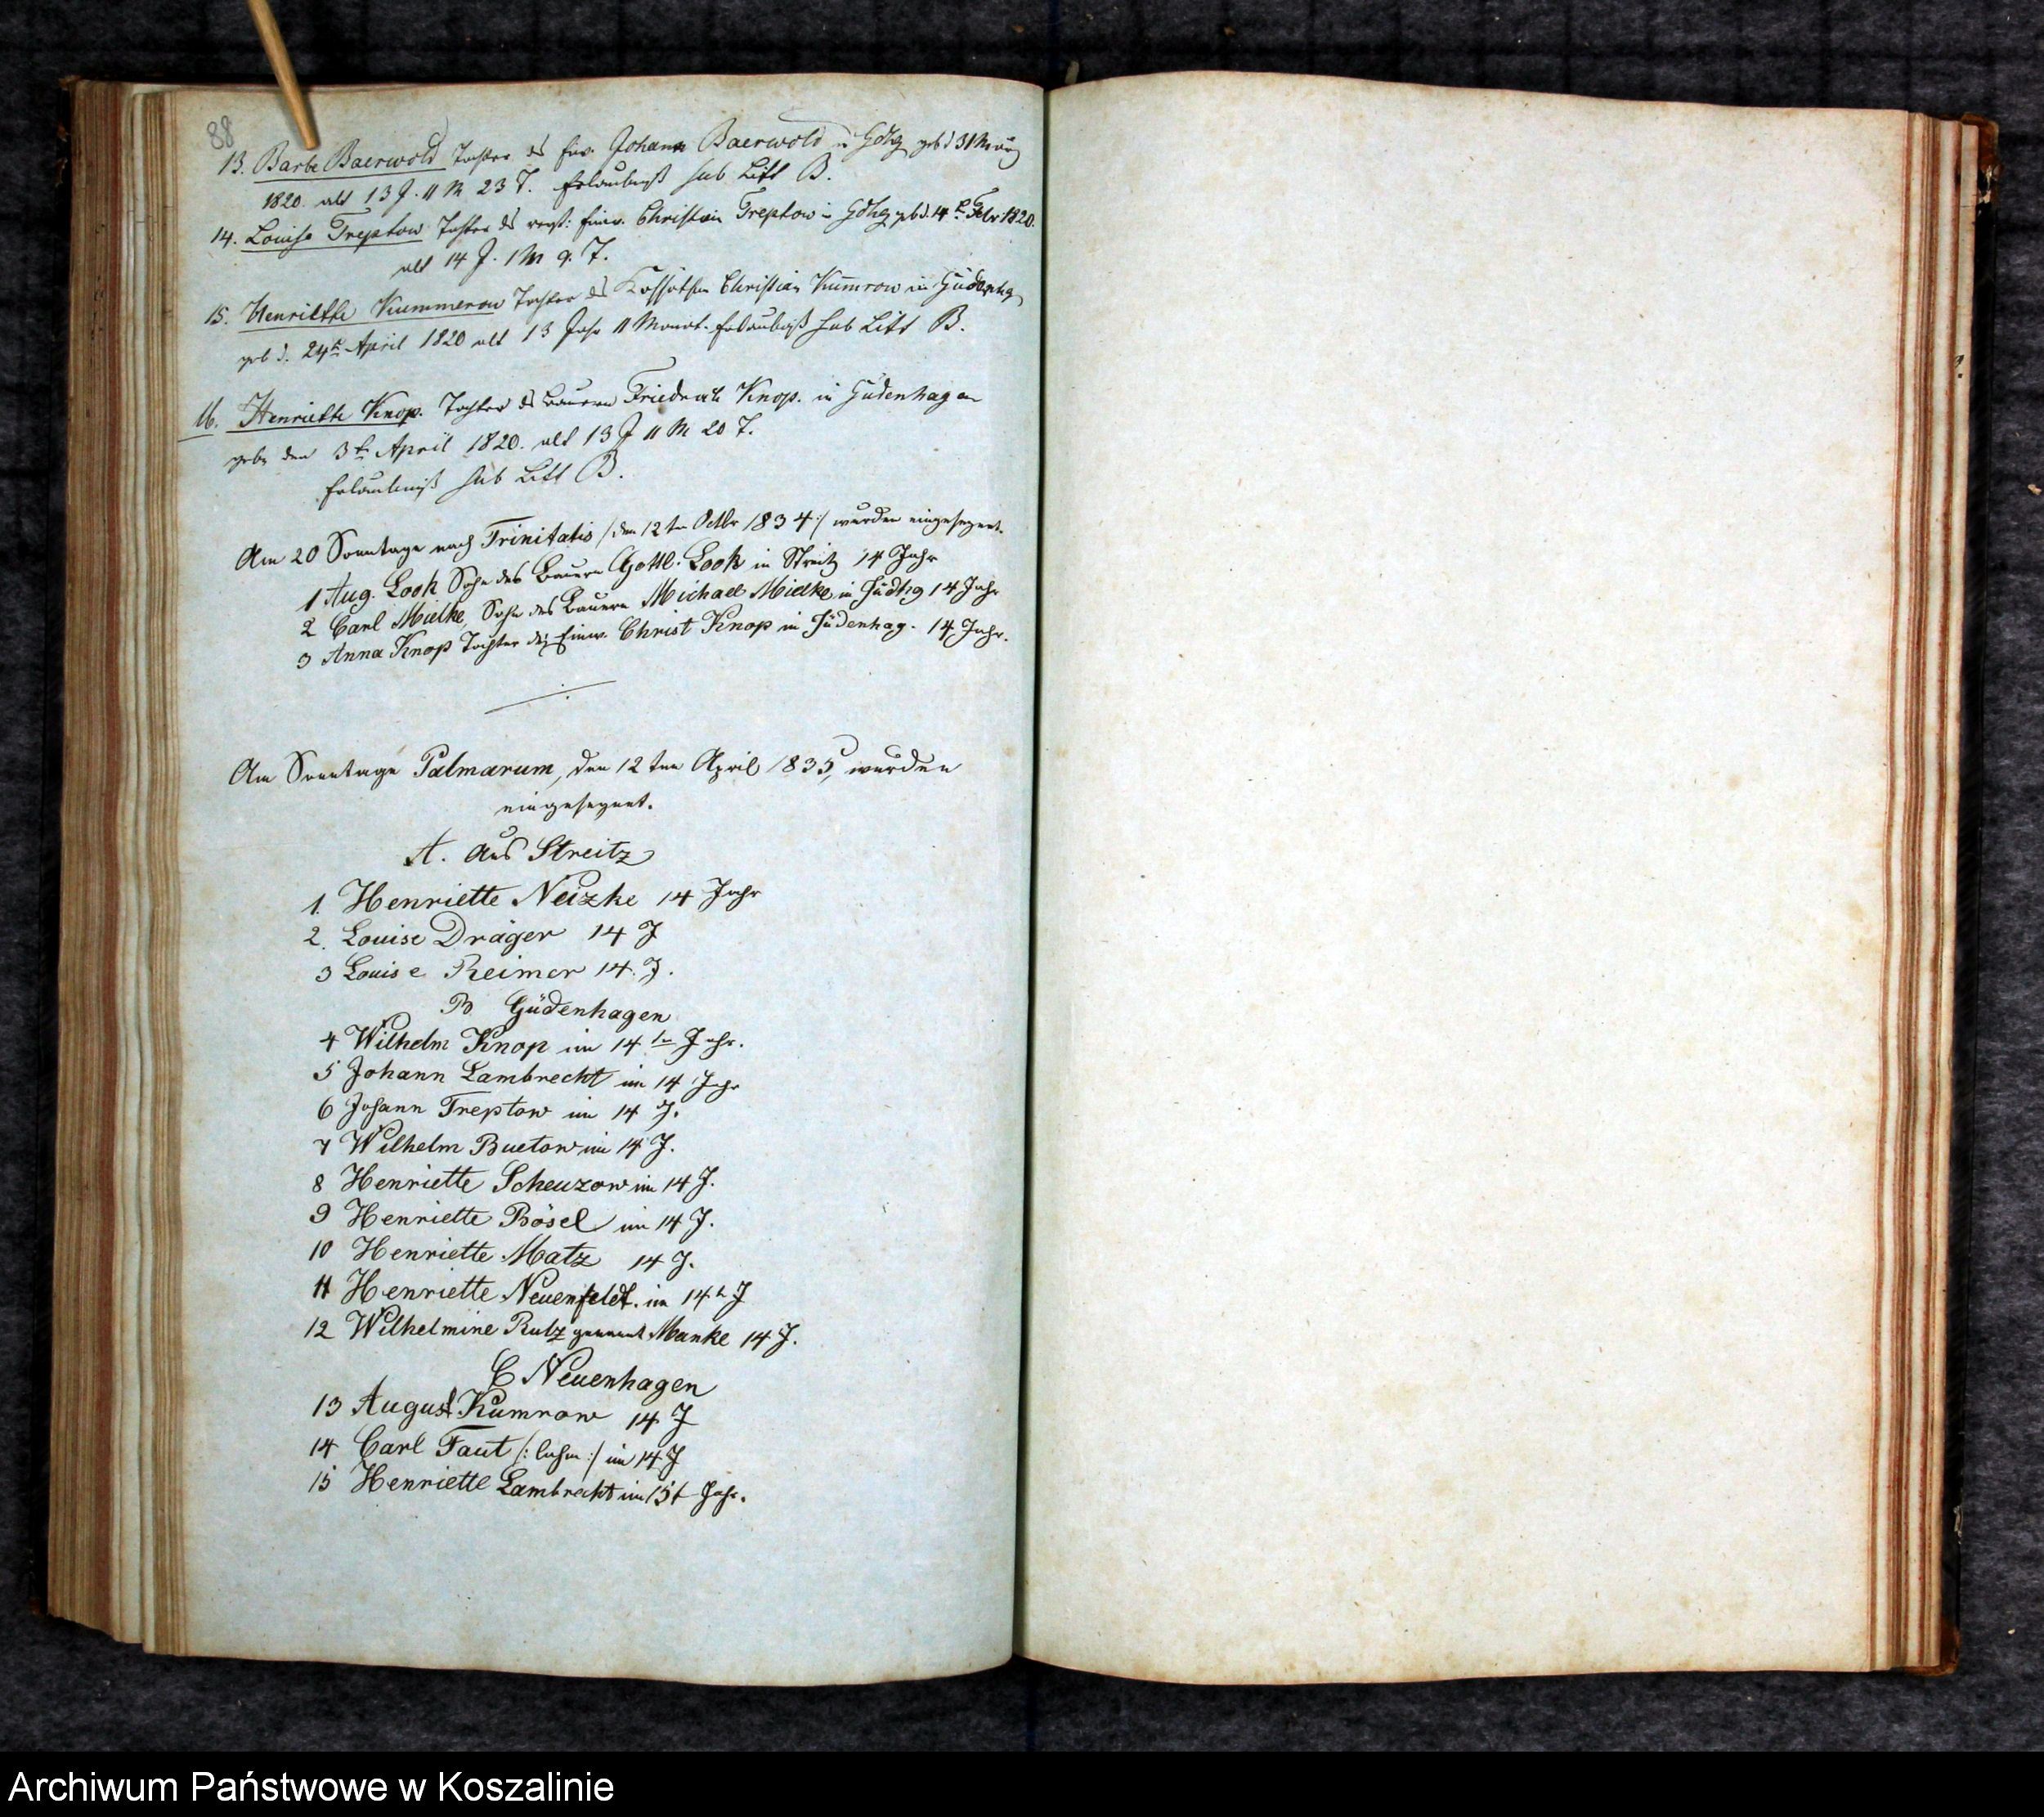 88
13. Barb. Baerwold Tochter des Einw. Johann Baerwold in Gdhg geb d 31 März
1820. alt 13 J. 11 M 23 T. Erlaubniß sub Litt B.
14. Louise Treptow Tochter des verst: Einw. Christian Treptow in Gdhg geb d. 14 Febr 1820.
alt 14 J. 1 M 9. T.
15. Henriette Kummerow Tochter des Kossäthen Christian Kumrow in
geb d. 24t April 1820 alt 13 Jahr 11 Monat. Erlaubniß sub Litt B.
16. Henriette Knop. Tochter des Bauern Friedrich Knop. in Güdenhagen
geb. den 3t April 1820. alt 13 J 11 M 20 T.
Erlaubniß sub Litt B.
Am 20 Sonntage nach Trinitatis /: den 12ten Octbr 1834 :/ wurden eingesegnet.
1 Aug. Look Sohn des Bauern Gottl. Look in Streitz 14 Jahr
2 Carl Mielke, Sohn des Bauern Michael Mielke in Güdhg 14 Jahr
3 Anna Knop Tochter des Einw. Christ Knop in Güdenhag. 14 Jahr.
Am Sonntage Palmarum, den 12ten April 1835, wurden
eingesegnet.
A. Aus Streitz
1. Henriette Neizke 14 Jahr
2. Louise Dräger 14 J
3 Louise Reimer 14. J.
B Güdenhagen
4 Wilhelm Knop im 14ten Jahr.
5 Johann Lambrecht im 14 Jahr
6 Johann Treptow im 14 J.
7 Wilhelm Buetow im 14 J.
8 Henriette Scheuzow im 14 J.
9 Henriette Bösel im 14 J.
10 Henriette Matz 14 J.
11 Henriette Neuenfeldt. im 14t J
12 Wilhelmine Rutz genannt Manke 14 J.
C Neuenhagen
13 August Kumrow 14 J
14 Carl Taut /: lahm :/ im 14 J
15 Henriette Lambrecht im 15t Jahr.
Archiwum Państwowe w Koszalinie